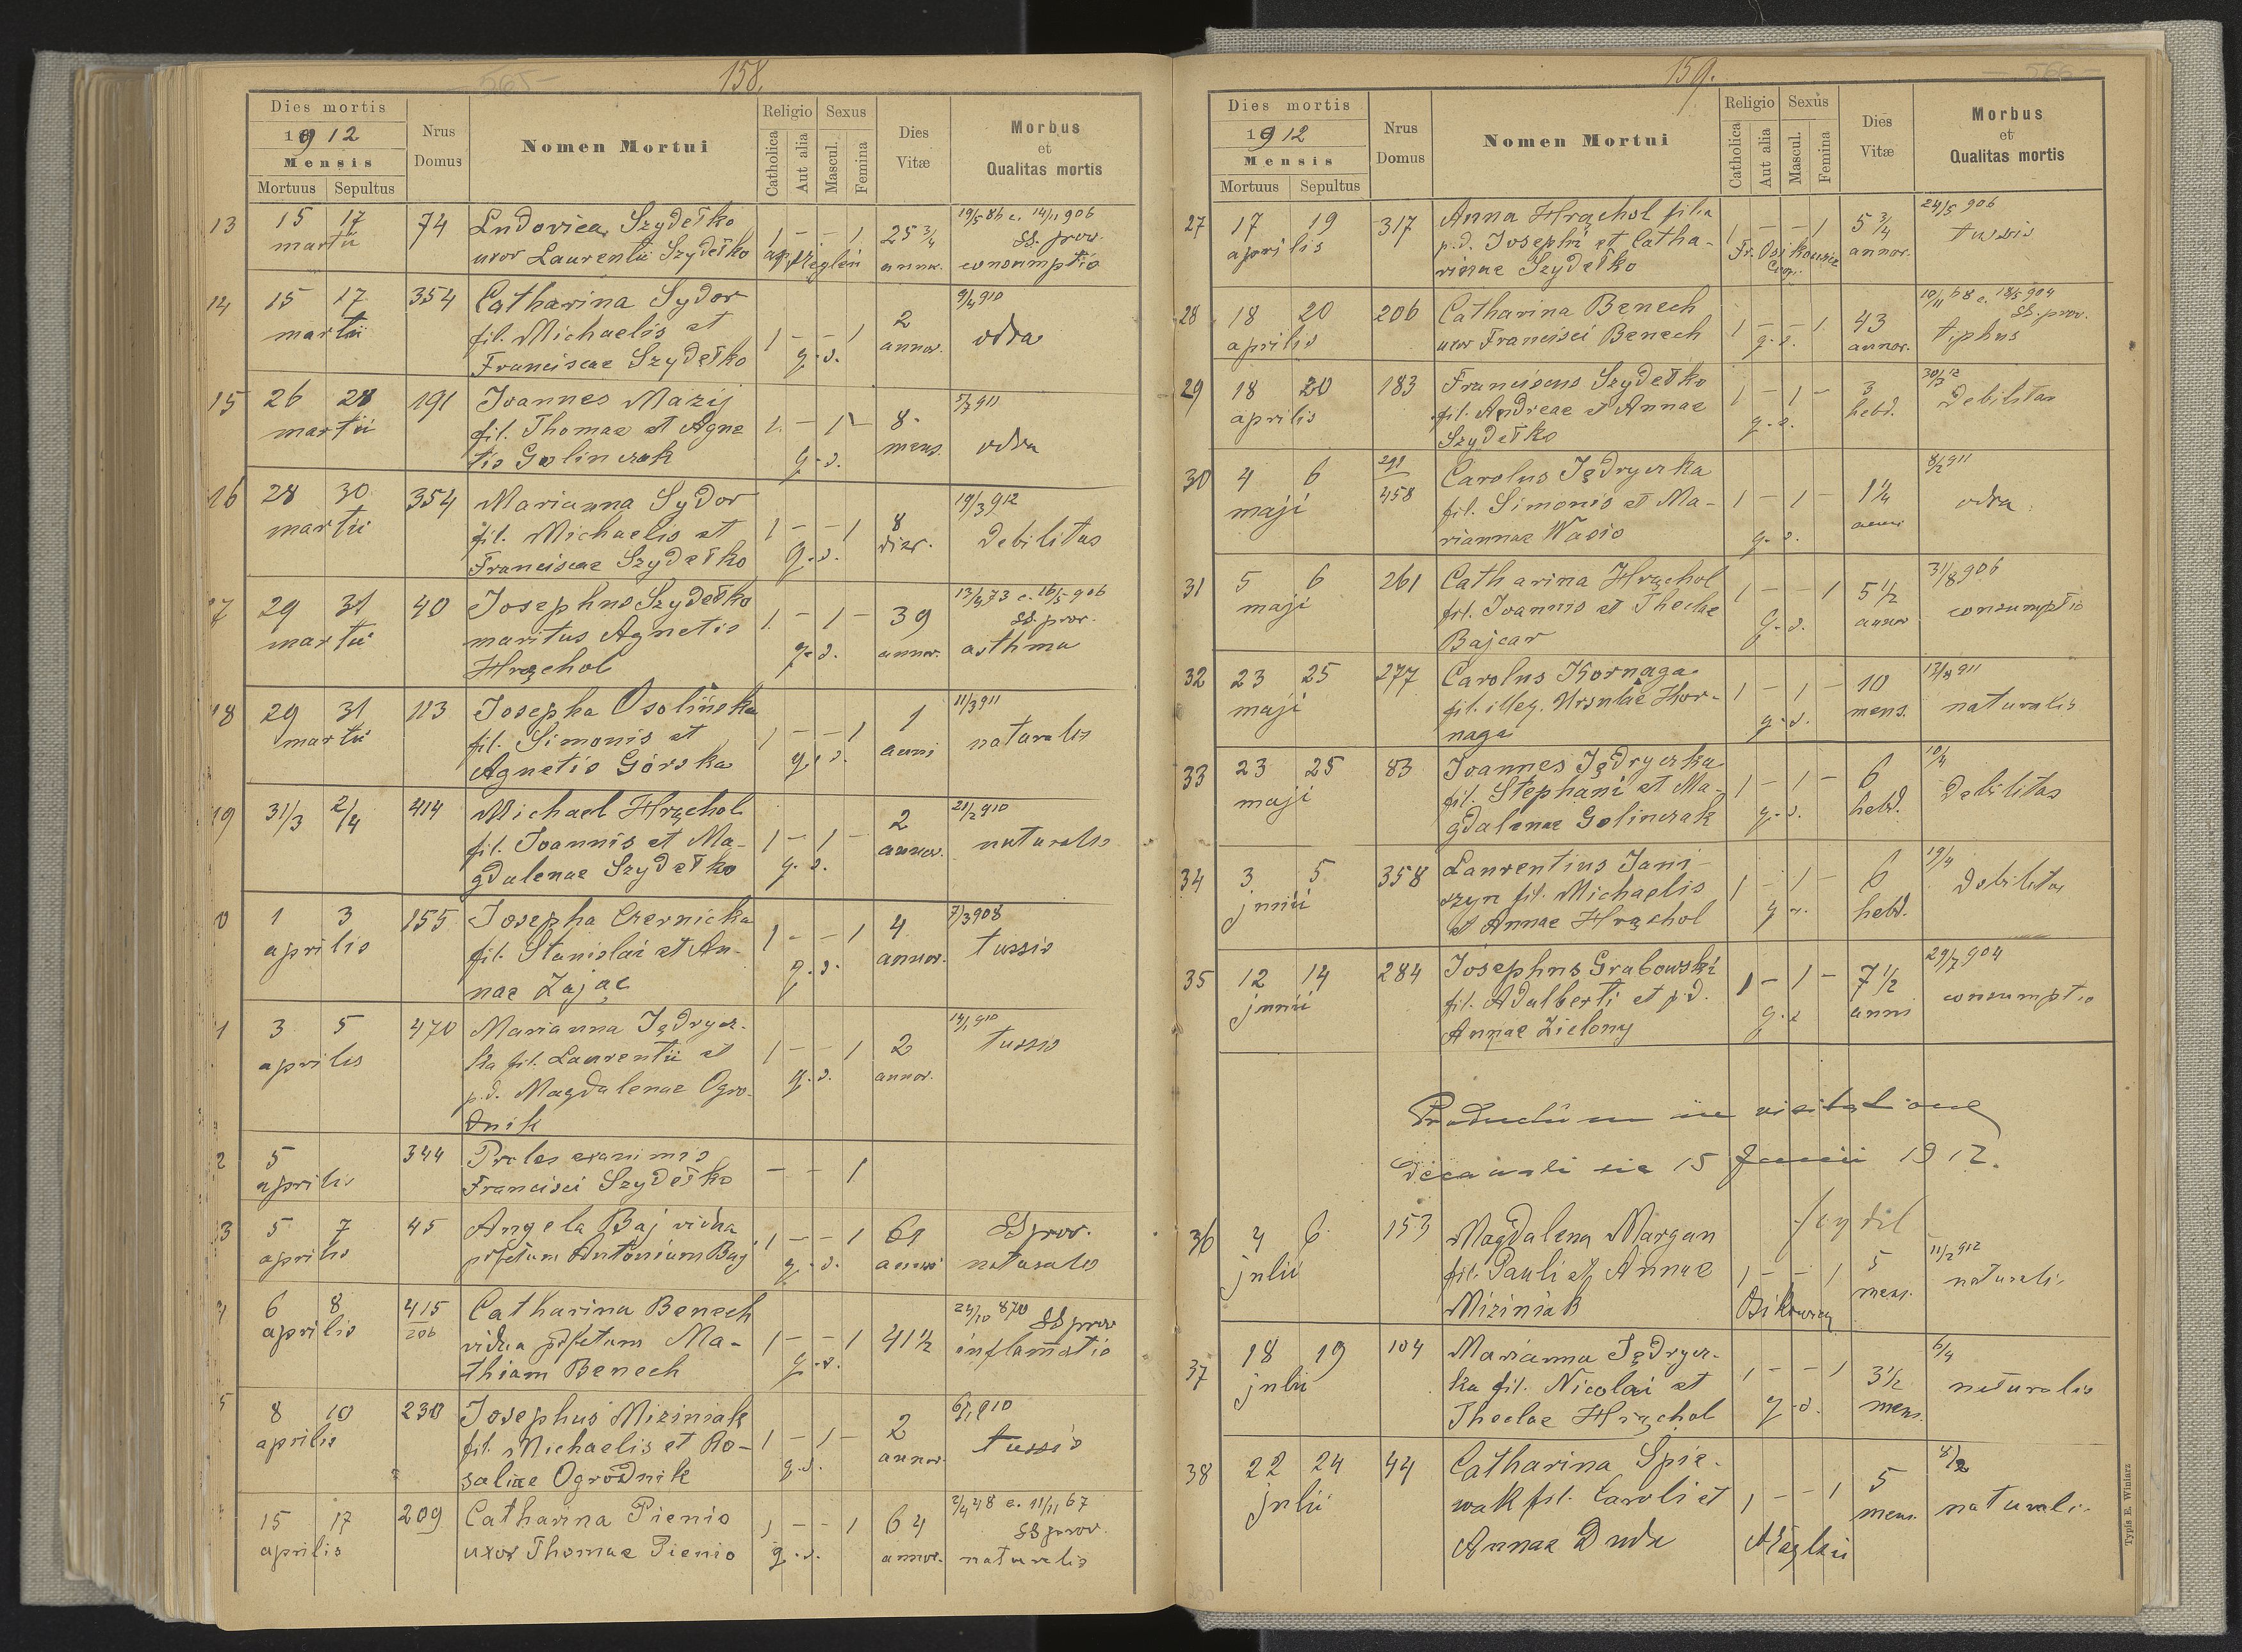 158.
Dies mortis
1912
Mensis
Mortuus Sepultus
Nrus Domus
Nomen Mortui
Religio
Catholica
Aut alia
Sexus
Mascul.
Femina
Dies Vitæ
Morbus et Qualitas mortis
13 15 17 martii 74
Ludovica Szydełko
uxor Laurentii Szydełko
1 - - 1
25 3/4 annor.
14/11 906
SS. prov.
consumptio
14 15 17 martii 354
Catharina Sydor
fil. Michaelis et
Franciscae Szydełko
1 - - 1
q. s.
2 annor.
9/4 910
odra
15 26 28 martii 191
Joannes Mazij
fil. Thomae et Agne
tis Golinczak
1. - 1 -
q. s.
8 mens.
odra
16 28 30 martii 354
Marianna Sydor
fil. Michaelis et
Franciscae Szydełko
1 - - 1
q. s.
8 dier.
19/3 912
debilitas
7 29 31 martii 40
Josephus Szydełko
maritus Agnetis
Hrąchol
1. - 1 -
q. s.
39 annor.
SS. prov.
asthma
18 29 31 martii 113
Josepha Osolińska
fil. Simonis et
Agnetis Górska
1 - - 1
q. s.
1 anni
11/3 911
naturalis
19 31/3 2/4 414
Michael Hrąchol
fil. Joannis et Ma-
gdalenae Szydełko
1 - 1 -
q. s.
2 annor.
21/2 910
naturalis
0 1 3 aprilis 155
Josepha Czernicka
fil. Stanislai et An-
nae Zając
1 - - 1
q. s.
4 annor.
7/3 908
tussis
1 3 5 aprilis 470
Marianna Jędrycz-
ka fil. Laurentii et
p.d. Magdalenae Ogro-
dnik
1 - - 1
q. s.
2 annor.
14/1 910
tussis
2 5 aprilis 344
Proles exanimis
Francisci Szydełko
- - 1
3 5 7 aprilis 45
Angela Baj vidua
Antonium Baj
1 - - 1
q. s.
61 anni
SS prov.
naturalis
4 6 8 aprilis 415/206
Catharina Benech
vidua Ma-
thiam Benech
1 - - 1
q. s.
41 1/2
24/10 870 SS prov
inflamatio
5 8 10 aprilis 230
Josephus Miziniak
fil. Michaelis et Ro-
saliae Ogrodnik
1 - 1 -
q. s.
2 annor.
tussis
15 17 aprilis 209
Catharina Pienio
uxor Thomae Pienio
1 - - 1
q. s.
64 annor.
2/4 48 c. 11/11 67
SS prov.
naturalis
159.
Dies mortis
1912
Mensis
Mortuus Sepultus
Nrus Domus
Nomen Mortui
Religio
Catholica
Aut alia
Sexus
Mascul.
Femina
Dies Vitæ
Morbus et Qualitas mortis
27 17 19 aprilis 317
Anna Hrąchol filia
p.d. Josephi et Catha-
rinae Szydełko
1 - - 1
5 3/4 annor.
24/5 906
tussis
28 18 20 aprilis 206
Catharina Benech
uxor Francisci Benech
1 - - 1
q. s.
43 annor.
10/11 68 c. 18/5 904
SS. prov.
tiphus
29 18 20 aprilis 183
Franciscus Szydełko
fil. Andreae et Annae
Szydełko
1 - 1 -
q. s.
3 hebd.
30/3 12
debilitas
30 4 6 maji 291/458
Carolus Jędryczka
fil. Simonis et Ma-
riannae Wasio
1 - 1 -
q. s.
1 1/4 anni
8/2 911
odra
31 5 6 maji 261
Catharina Hrąchol
fil. Joannis et Theclae
Bajcar
1 - - 1
q. s.
5 1/2 annor
31/8 906
consumptio
32 23 25 maji 277
Carolus Kornaga
fil. illeg. Ursulae Kor-
naga
1 - 1 -
q. s.
10 mens.
naturalis
33 23 25 maji 83
Joannes Jędryczka
fil. Stephani et Ma-
gdalenae Golinczak
1 - 1 -
q. s.
6 hebd.
10/4
debilitas
34 3 5 junii 358
Laurentius Jani-
szyn fil. Michaelis
et Annae Hrąchol
1 - 1 -
6 hebd.
19/4
debilitas
35 12 14 junii 284
Josephus Grabowski
fil. Adalberti et p.d.
Annae Zielony
1 - 1 -
q. s
7 1/2 anni
29/7 904
consumptio
Productum in visitatione
decanali die 15 Junii 1912.
36 4 6 julii 153
Magdalena Margan
fil. Pauli et Annae
Miziniak
1 - - 1
5 mens.
11/2 912
naturalis
37 18 19 julii 104
Marianna Jędrycz-
ka fil. Nicolai et
Theclae Hrąchol
1 - - 1
q. s.
3 1/2 mens.
6/4
naturalis
38 22 24 julii 44
Catharina Śpie-
wak fil. Caroli et
Annae Duda
1 - - 1
5 mens.
8/2
naturalis
Typis E. Winiarz